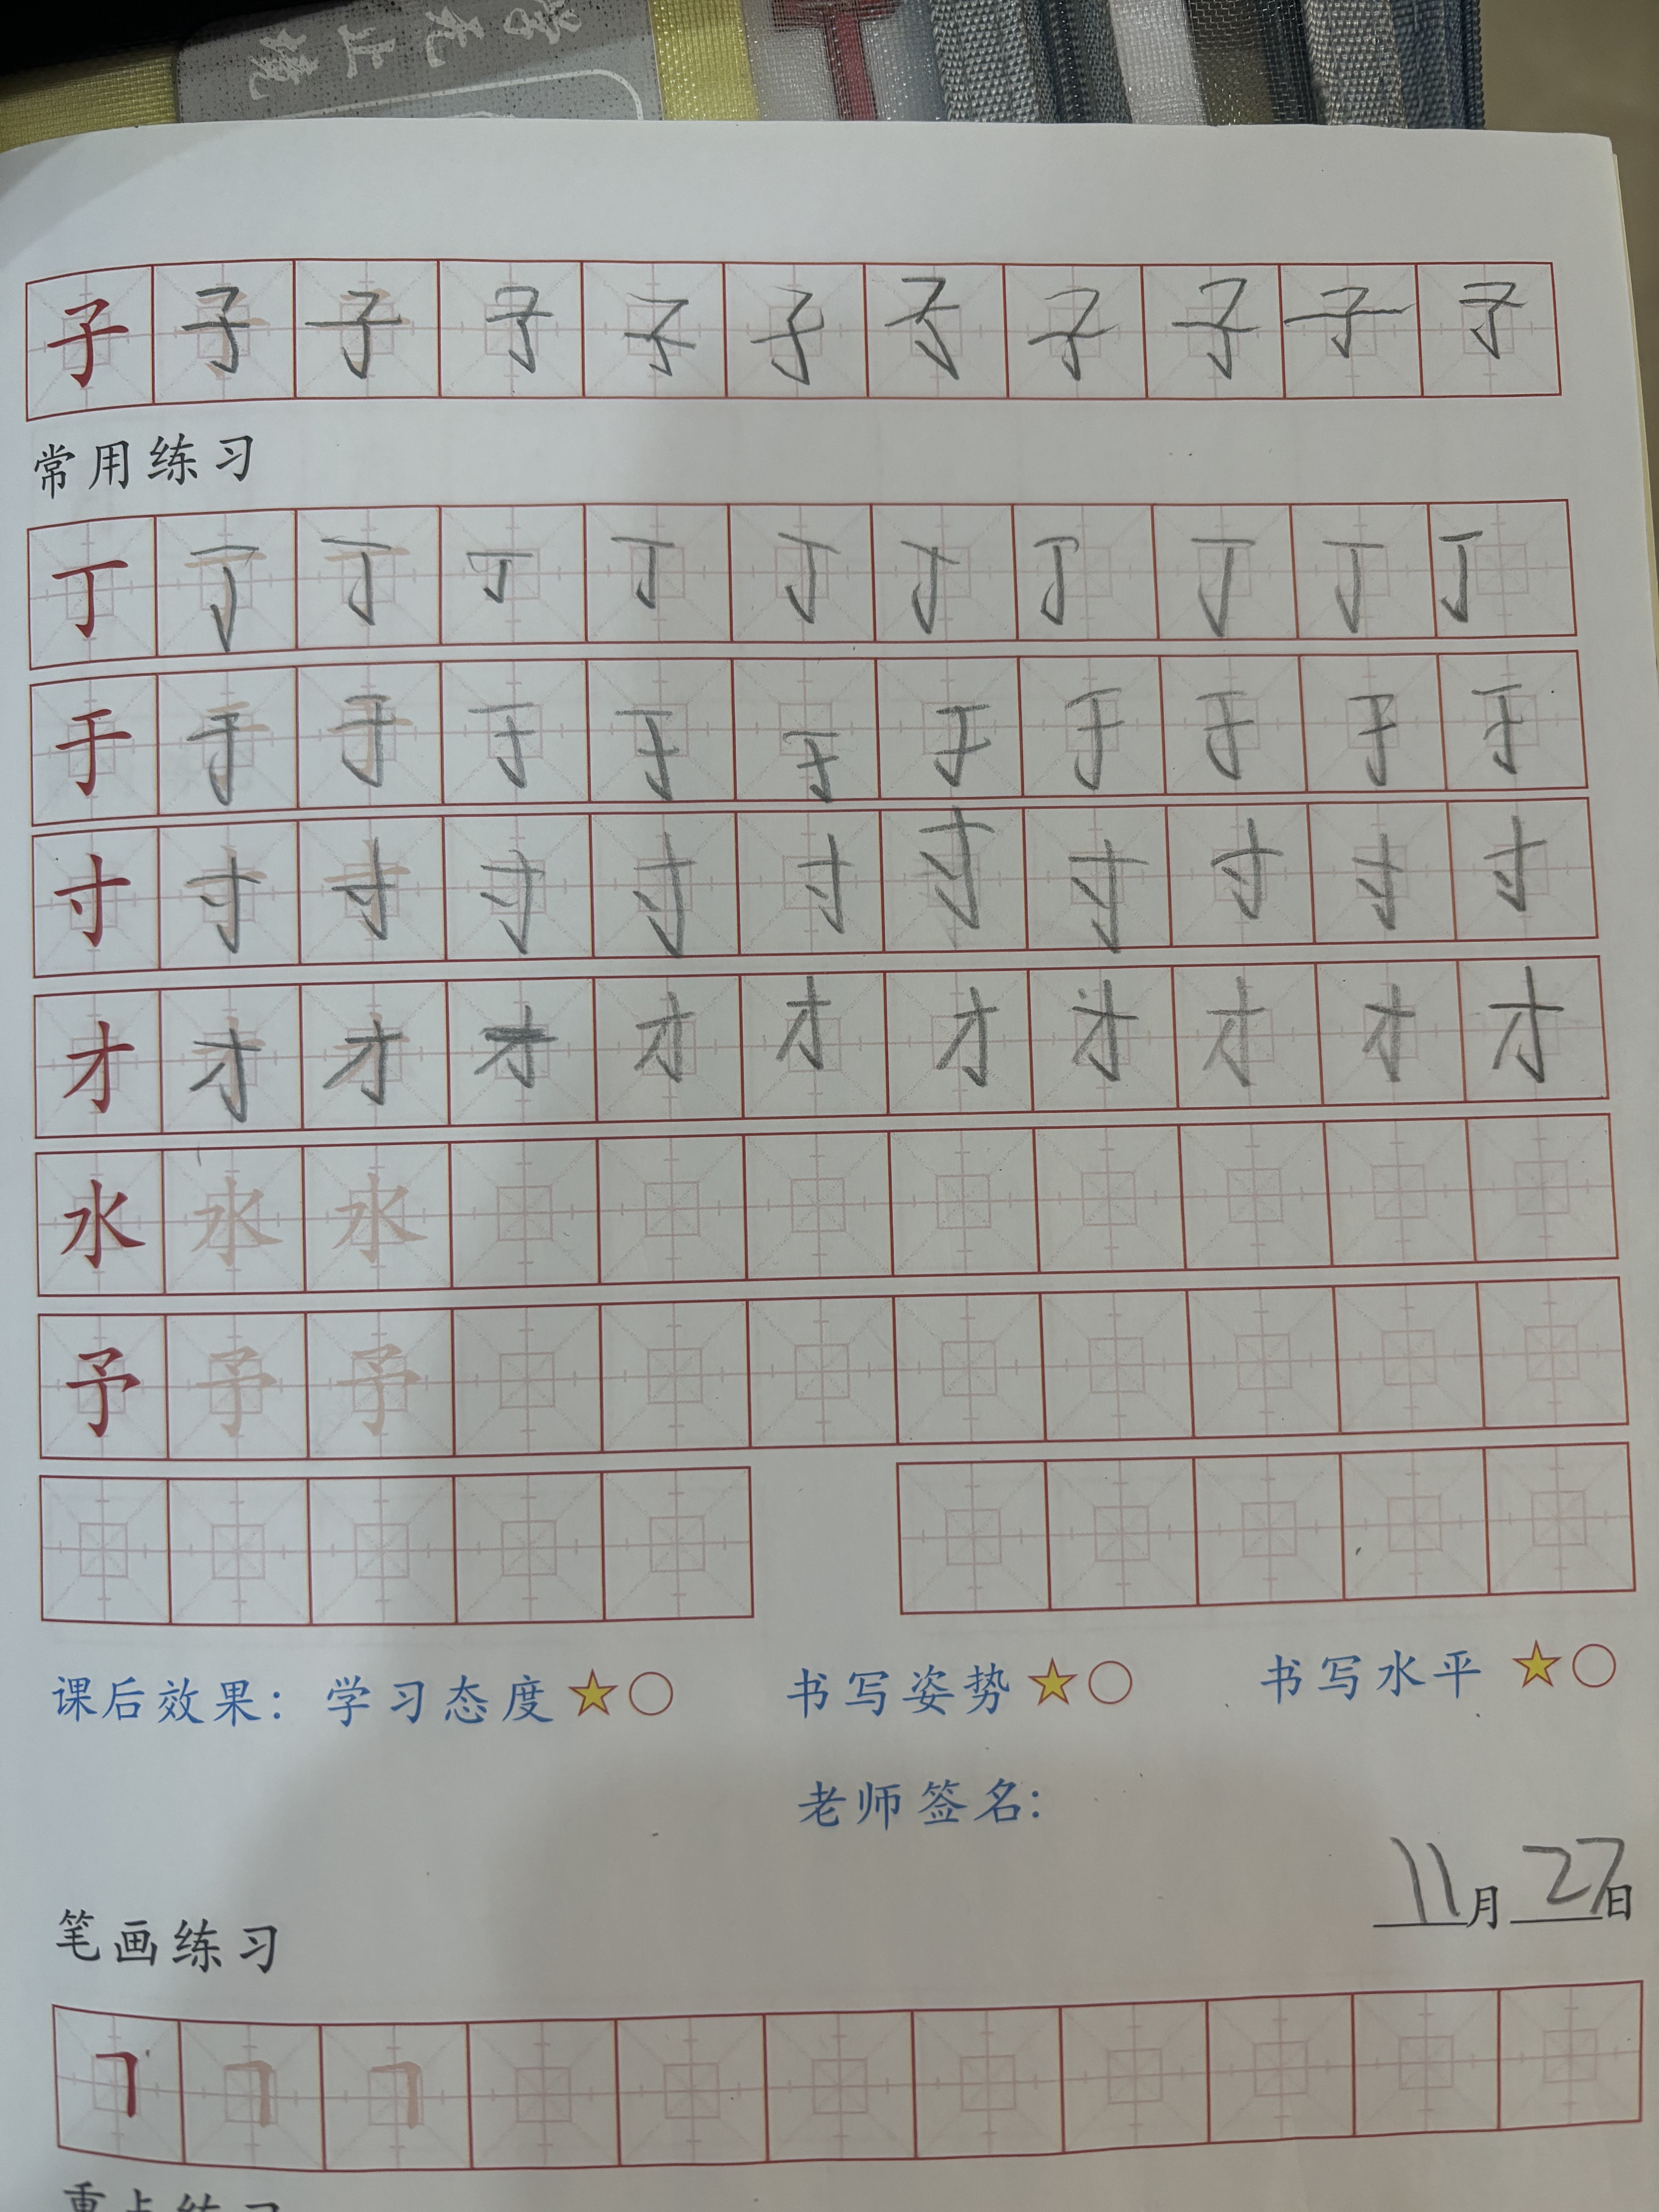 学无止境
子 子 子 子 子 子 子 子 子 子 子
常用练习
丁 丁 丁 丁 丁 丁 丁 丁 丁 丁 丁
于 于 于 于 于 于 于 于 于 于 于
寸 寸 寸 寸 寸 寸 寸 寸 寸 寸 寸
才 才 才 才 才 才 才 才 才 才 才
水 水 水
予 予 予
课后效果：学习态度★○ 书写姿势★○ 书写水平★○
老师签名：
11月27日
笔画练习
㇕ ㇕ ㇕
重点练习